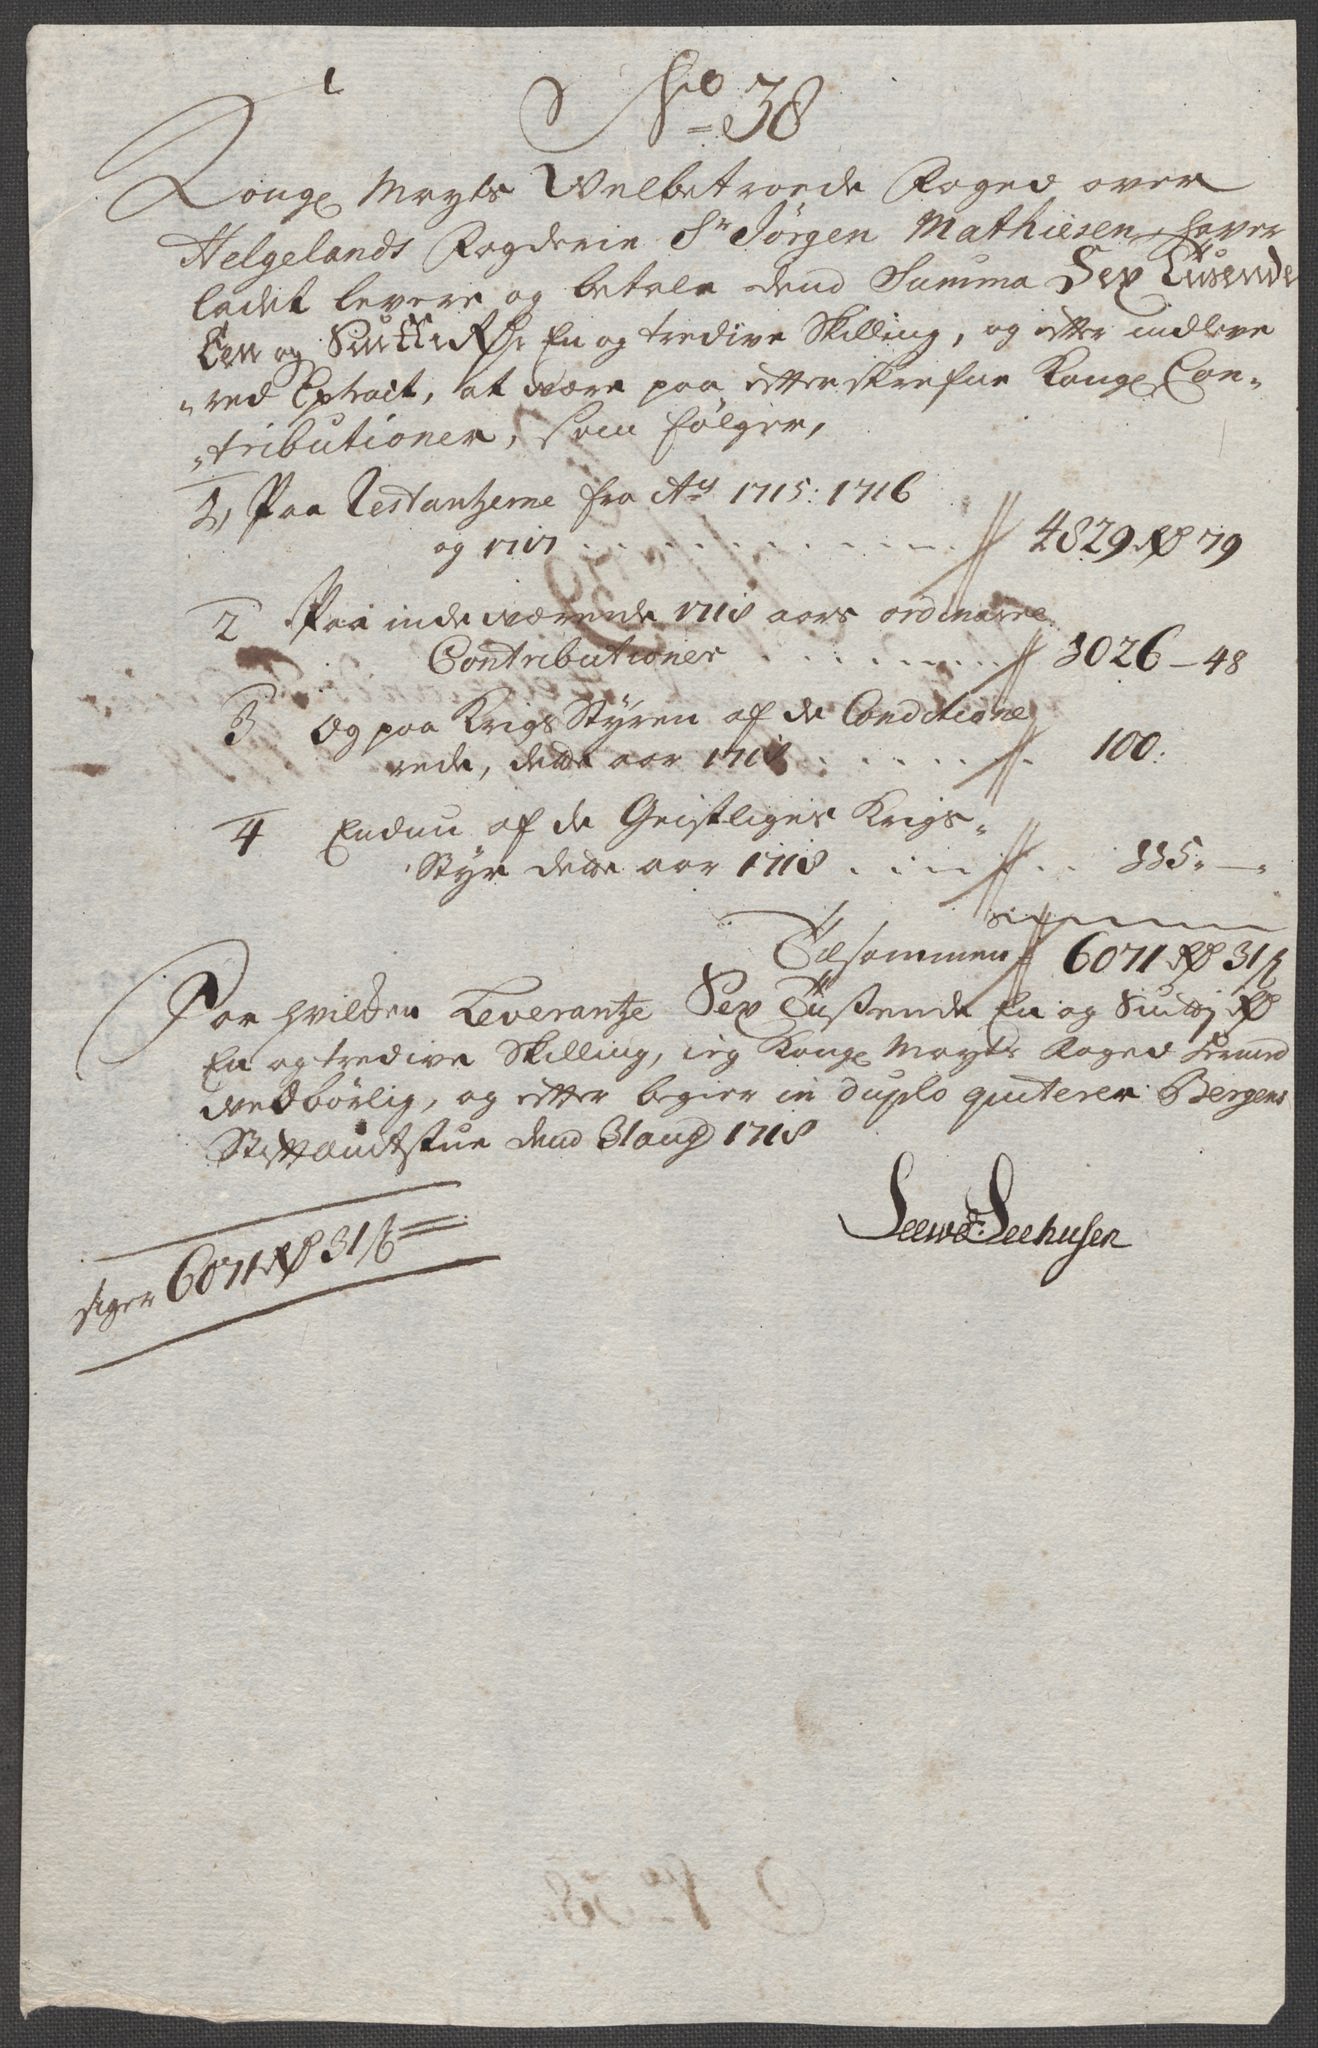 No 38
Kongl Mayts Velbetroede Foged over
Helgelands Fogderie Sr Jörgen Mathiesen, haver
ladet levere og betale dend Summa Sex Tusende
Een og Siuttie Rdr En og tredive Skilling, og efter indleve
"red Extract, at være paa efterskrefne Kongl Con-
"tributioner, som følger,
1, Paa Restantzerne fra Ao 1715: 1716
og 1717 . . . . . . . . . . 4829 Rd 79
2 Paa indeværende 1718 aars ordinaire
Contributioner . . . . . . . 1026 - 48
3 Og paa Krigs Styren af de Conditione
rede, dette aar 1718 . . . . . . 100:
4 Endnu af de Geistliges Krigs-
Styr dette aar 1718 . . . . . 115 - "
Tilsammen 6071 Rd 31 s
For hvilken Leverantze Sex Tusende En og Siutti Rd
En og tredive Skilling, ieg Kongl Mayts Foged hermed
vedbörlig, og efter begier in duplo quiterer Bergens
Stiftamtstue dend 31 aug 1718
Seehusen
siger 6071 Rd 31 s